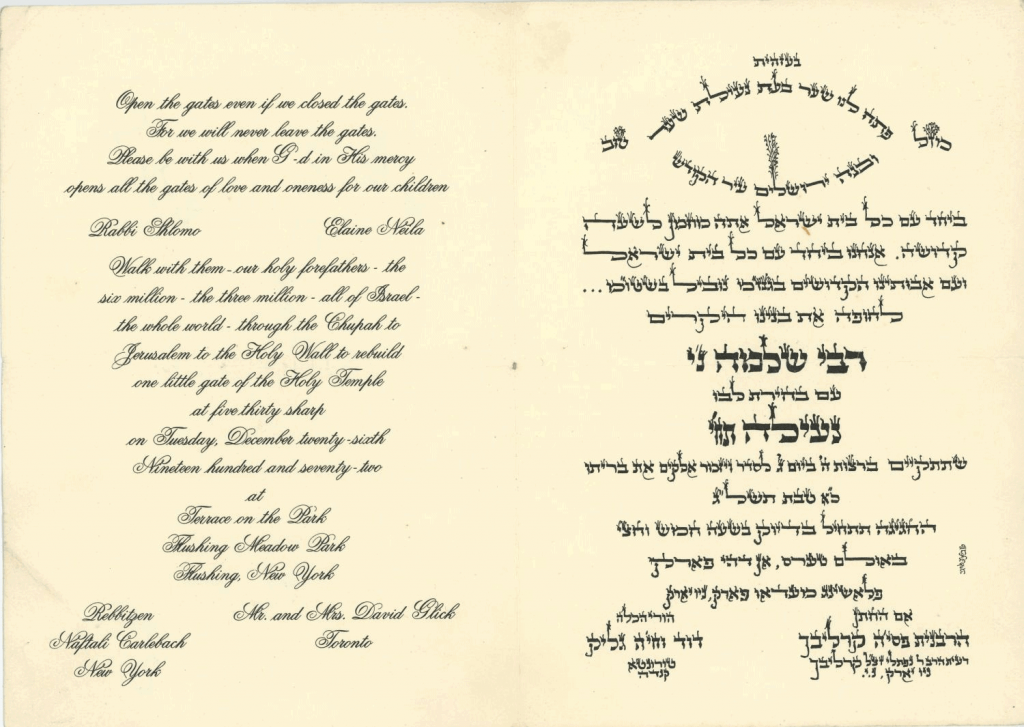 Open the gates even if we closed the gates.
For we will never leave the gates.
Please be with us when G-d in His mercy
opens all the gates of love and oneness for our children
Rabbi Shlomo
Elaine Neila
Walk with them - our holy forefathers - the
six million - the three million - all of Israel -
the whole world - through the Chupah to
Jerusalem to the Holy Wall to rebuild
one little gate of the Holy Temple
at five thirty sharp
on Tuesday, December twenty-sixth
Nineteen hundred and seventy-two
at
Terrace on the Park
Flushing Meadow Park
Flushing, New York
Rebbitzen
Naftali Carlebach
New York
Mr. and Mrs. David Glick
Toronto
בעזהית
פתח לנו שער בעת נעילת שער
מזל
טוב
ובנה ירושלים עיר הקדש
ביחד עם כל בית ישראל אתה מוזמן לשעה
קדושה. אנחנו ביחד עם כל בית ישראל
ועם אבותינו הקדושים
לחופה את בנינו היקרים
רבי שלמה ני
עם בחירת לבו
נעילה תחי
שתתקיים ברצות ה׳ ביום ג׳ לסדר ויזכור אלקים את בריתו
כ״א טבת תשל״ג
החגיגה תתחיל בדיוק בשעה חמש וחצי
באולם טערס, אן דהי פארק
פלאשינג מעדאו פארק, ניו יארק
אם החתן
הרבנית פסיה קרליבך
רעית הרב ר׳ נפתלי זצ״ל קרליבך
ניו יארק, נ.י.
הורי הכלה
דוד וחיה גליק
טורונטא
קנדה